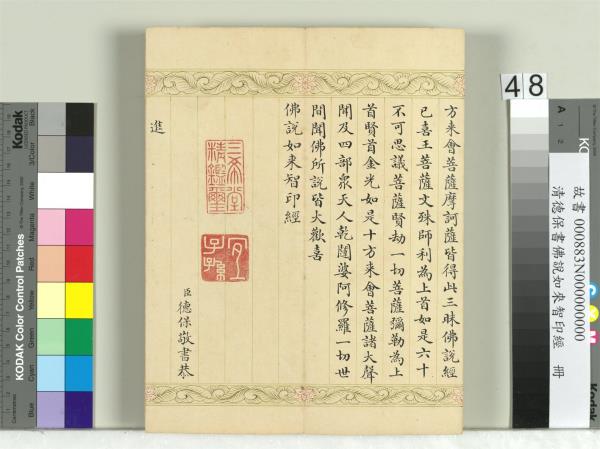 方來會菩薩摩訶薩皆得此三昧佛說經
已喜王菩薩文殊師利為上首如是六十
不可思議菩薩賢劫一切菩薩彌勒為上
首賢首金光如是十方來會菩薩諸大聲
聞及四部眾天人乾闥婆阿修羅一切世
間聞佛所說皆大歡喜
佛說如來智印經
三希堂
精鑑璽
宜
子孫
臣德保敬書恭
進
48
故書 000883N000000000
清德保書佛說如來智印經 冊
Kodak
KODAK Color Control Patches
Blue
Cyan
Green
Yellow
Red
Magenta
White
3/Color
Black
Kodak
A 1 2
C
Y
M